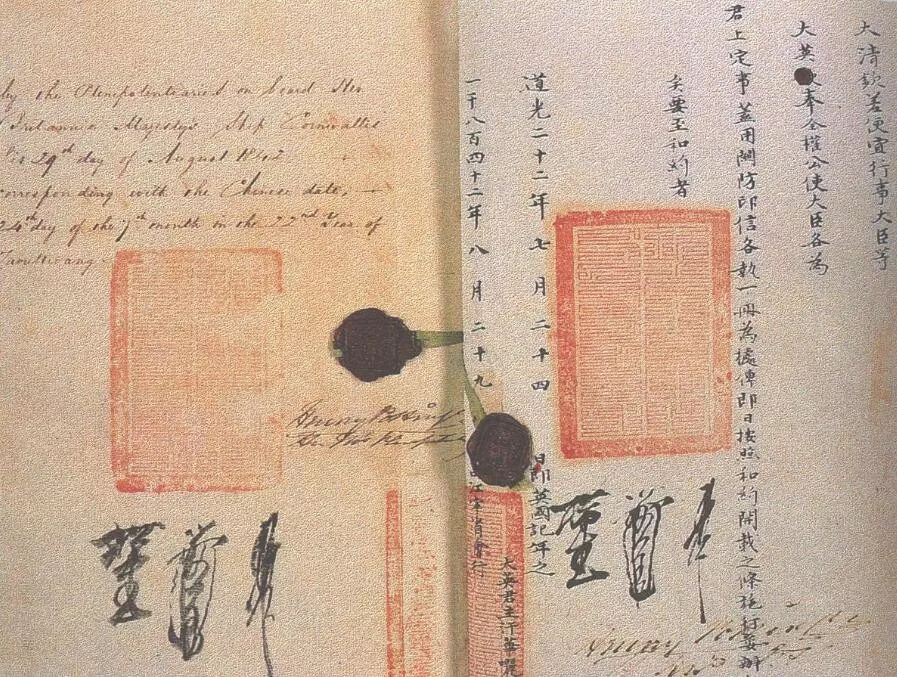 by the Plenipotentiaries on board Her
Britannic Majesty's Ship Cornwallis
29th day of August 1842
corresponding with the Chinese date,
24th day of the 7th month in the 22nd Year of
Taoukwang
Henry Pottinger
大清欽差便宜行事大臣等
大英奉全權公使大臣各為
君上定事蓋用關防印信各執一冊為據俾即日按照和約開載之條施行妥辦
矣要至和約者
道光二十二年七月二十四日即英國記年之
一千八百四十二年八月二十九江寧省會行
大英君主汗華
Henry Pottinger